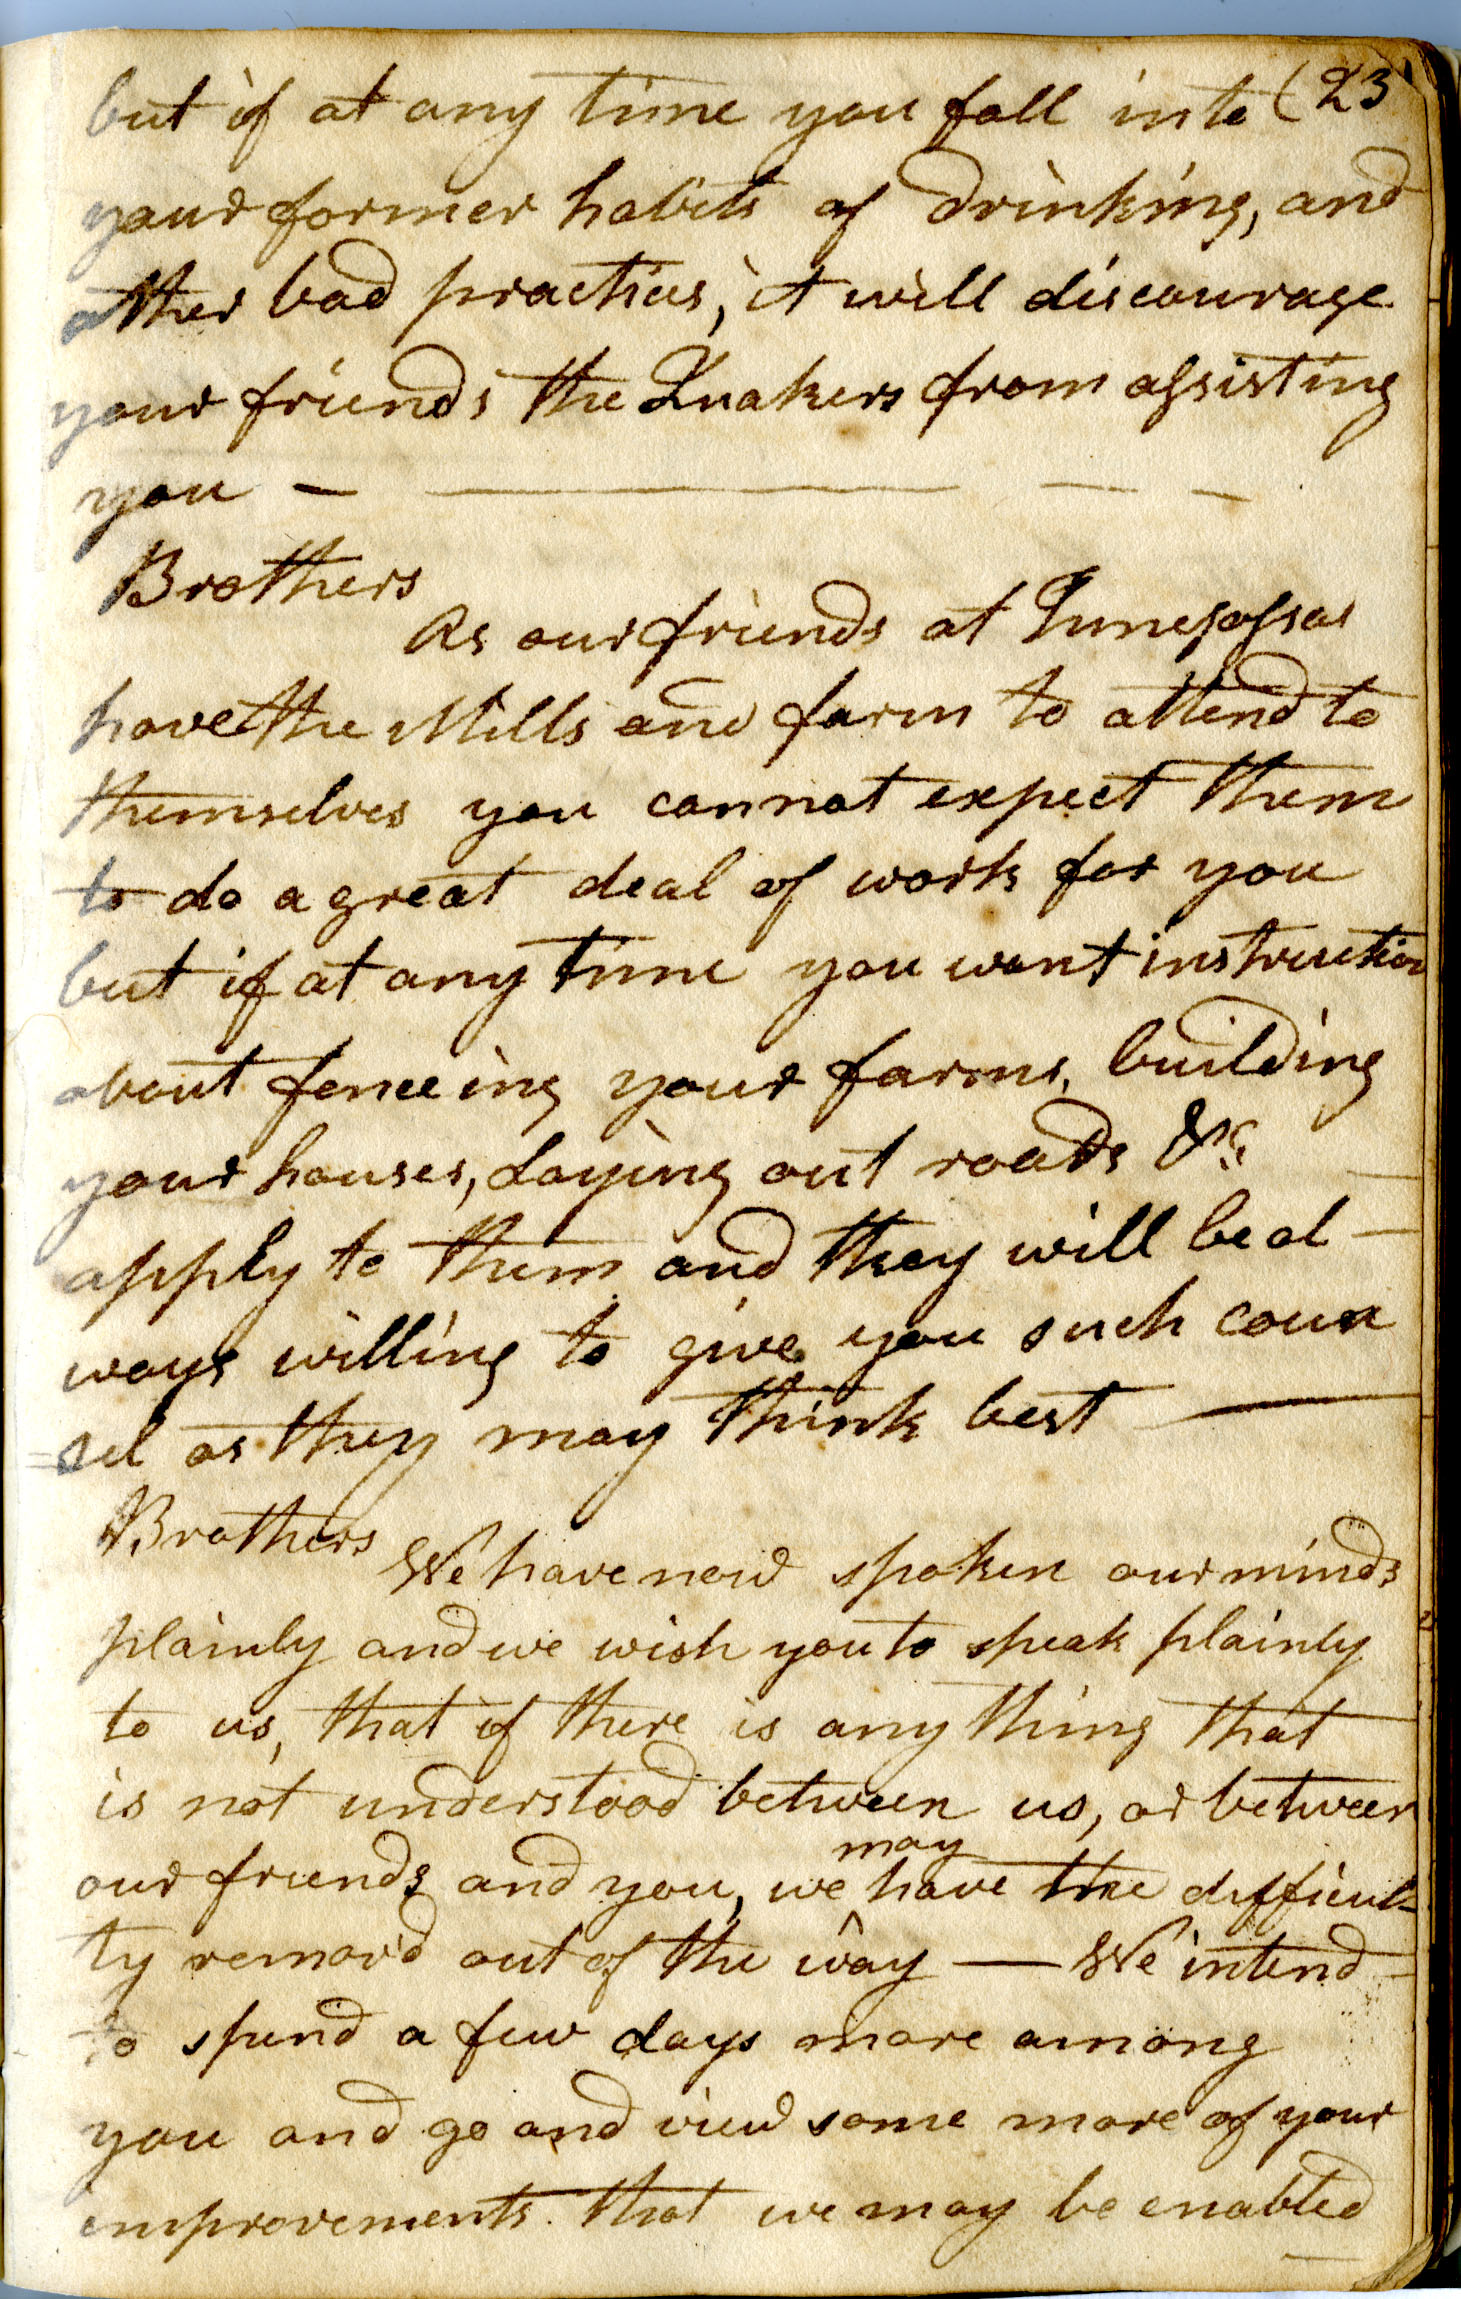 but if at any time you fall into (23
your former habits of drinking, and
other bad practices, it will discourage
your friends the Quakers from assisting
you —
Brothers
As our friends at Tunesassa
have the Mills and farm to attend to
themselves you cannot expect them
to do a great deal of work for you
but if at any time you want instruction
about fenceing your farms, building
your houses, Laying out roads &c
apply to them and they will be al
ways willing to give you such coun
=sel as they may think best —
Brothers
We have now spoken our minds
plainly and we wish you to speak plainly
to us, that if there is any thing that
is not understood between us, or between
may
our friends and you, we ^ have the difficul-
ty remov'd out of the way — We intend
to spend a few days more among
you and go and view some more of your
improvements that we may be enabled